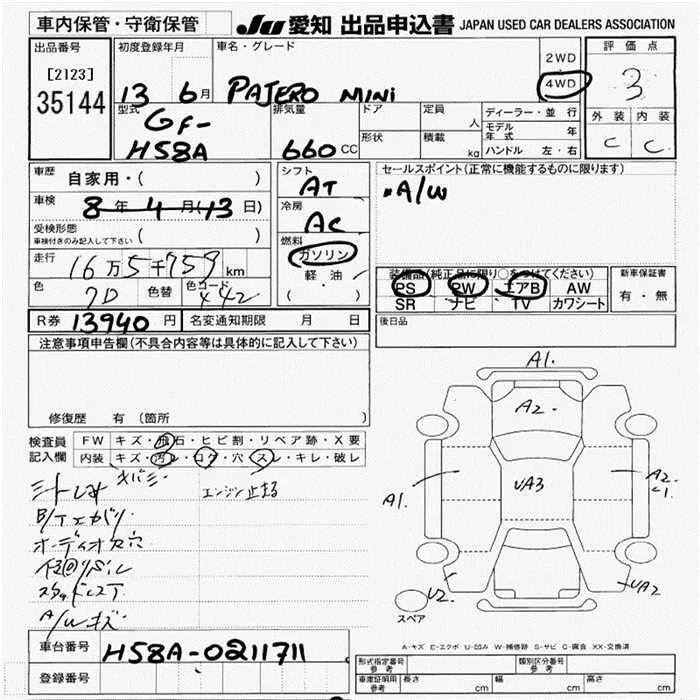 車内保管・守衛保管
JU 愛知 出品申込書 JAPAN USED CAR DEALERS ASSOCIATION
出品番号
[2123]
35144
初度登録年月
13 6月
車名・グレード
PAJERO MINI
2WD
4WD
評価点
3
外装 内装
C C
型式
GF-
H58A
排気量
660 CC
ドア
形状
定員
人
積載
kg
ディーラー・並行
モデル年式 年
ハンドル 左・右
車歴
自家用・( )
車検
8年4月(13日)
受検形態
車検付きのみ記入して下さい ( )
走行
16万5千759km
色
7D
色替
色コード
シフト
AT
冷房
AC
燃料
ガソリン
軽油
( ・ )
セールスポイント(正常に機能するものに限ります)
A/W
装備品(純正品に限り○をつけてください)
PS PW エアB AW
SR ナビ TV カワシート
新車保証書
有・無
R券 13940 円
名変通知期限 月 日
後日品
注意事項申告欄(不具合内容等は具体的に記入して下さい)
修復歴 有(箇所 )
検査員
記入欄
FW キズ・飛石・ヒビ割・リペア跡・X要
内装 キズ・汚レ・コゲ・穴・スレ・キレ・破レ
エンジン止まる
オーディオ欠穴
スタッドレス
A/Wキズ
A1.
A2-
A1.
UA3
A2-
U2
UA2
スペア
A-キズ E-エクボ U-凹み W-補修跡 S-サビ C-腐食 XX-交換済
車台番号
H58A-0211711
登録番号
形式指定番号
参考
類別区分番号
参考
車庫証明用
参考
長さ cm
幅 cm
高さ cm